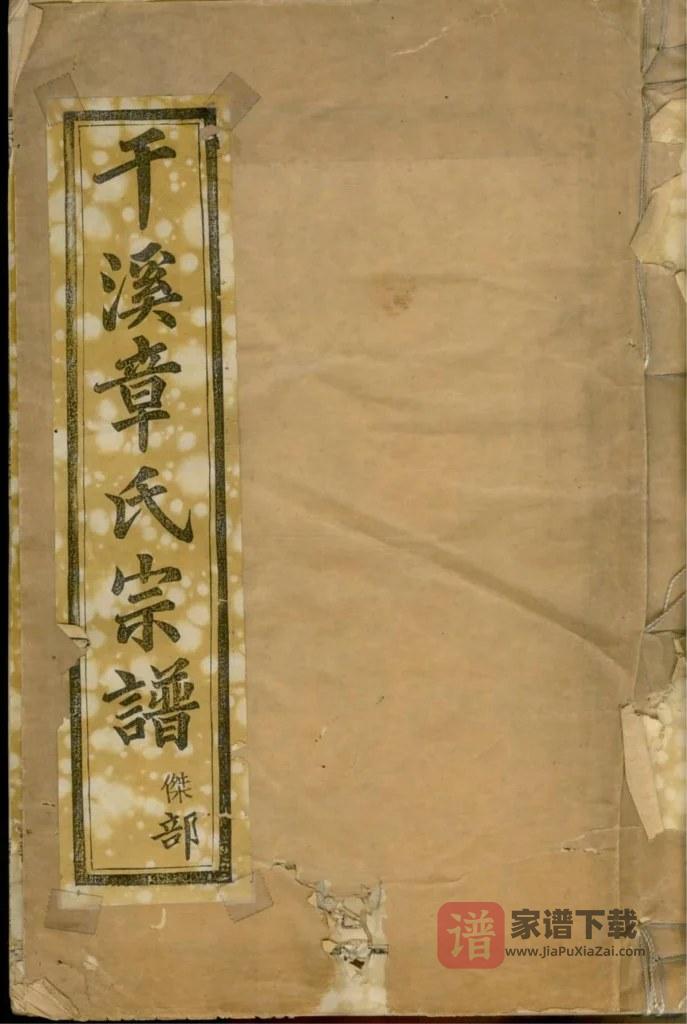 干溪章氏宗譜
傑部
谱
家谱下载
www.JiaPuXiaZai.com